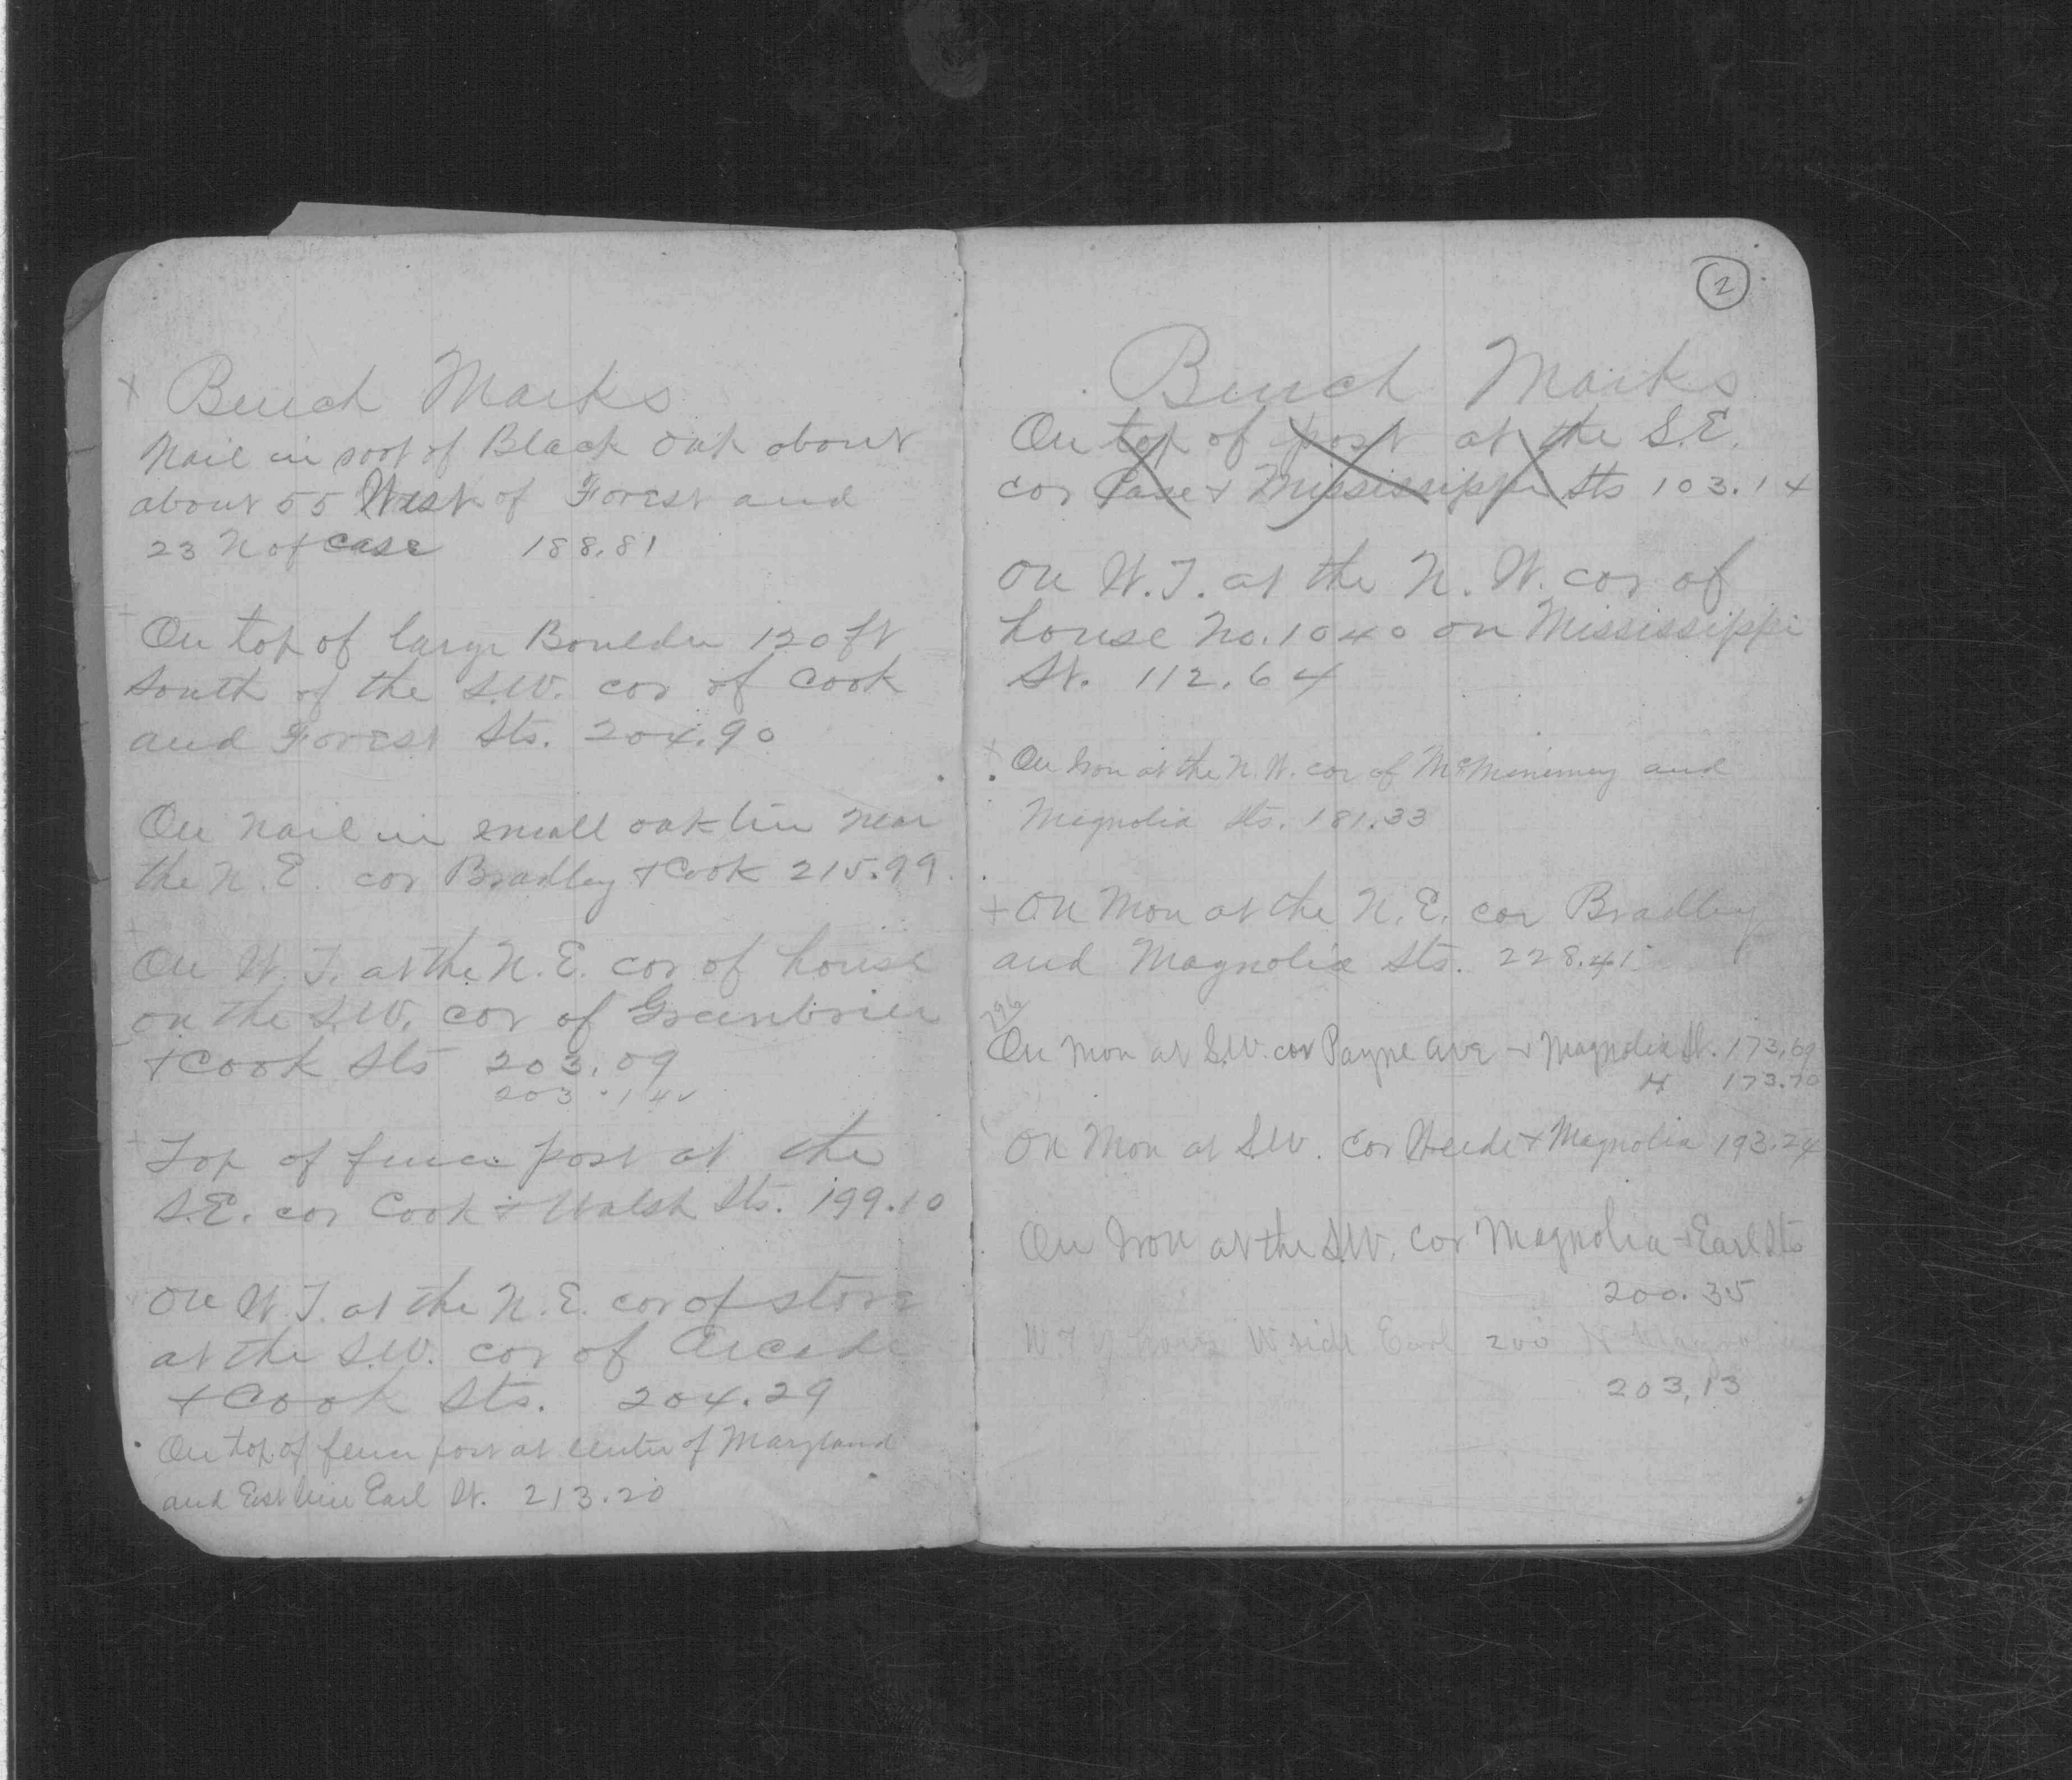 x Bench Marks
Nail in root of Black Oak about
about 55 West of Forest and
23 N of Case 188.81
+ On top of large Boulder 120 ft
South of the S.W. cor of Cook
and Forest Sts. 204.90
On nail in small oak near
the N.E. cor Bradley + Cook 215.99
+ On W.T. at the N.E. cor of house
on the S.W. cor of Greenbrier
+ Cook Sts 203.09
203.14
+ Top of fence post at the
S.E. cor Cook + Walsh Sts. 199.10
On W.T. at the N.E. cor of store
at the S.W. cor of Arcade
+ Cook Sts. 204.29
On top of fence post at center of Maryland
and East line Earl St. 213.20
2
Bench Marks
On top of post at the S.E.
cor Case + Mississippi Sts 103.14
On W.T. at the N.W. cor of
house No. 1040 on Mississippi
St. 112.64
x On Iron at the N.W. cor of McMenemy and
Magnolia Sts. 181.33
+ On Mon at the N.E. cor Bradley
and Magnolia Sts. 228.41
796
On Mon at S.W. cor Payne Ave + Magnolia St. 173.69
173.70
On Mon at S.W. cor Weide + Magnolia 193.24
On Iron at the S.W. cor Magnolia + Earl Sts
200.35
W.T. of house W side Earl 200 N Magnolia
203.13